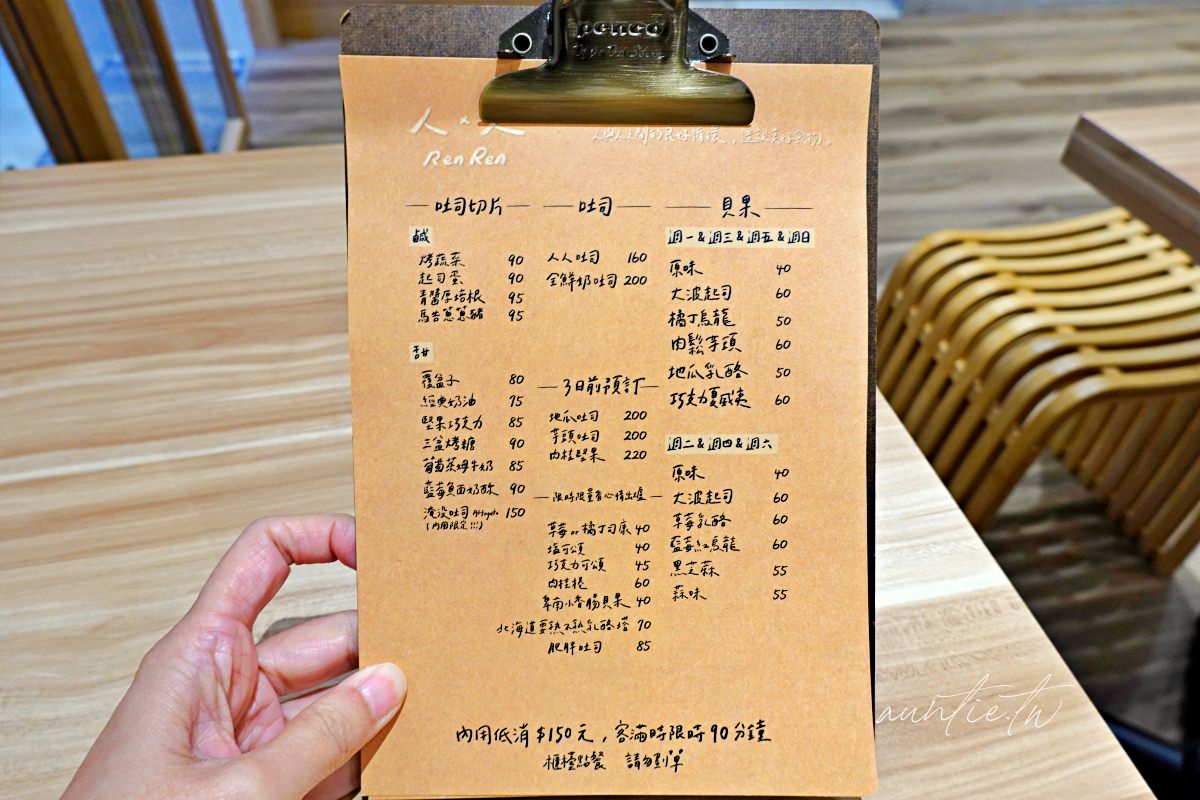 penco
人人
Ren Ren
人與人之間的良好循環，造就美好食物。
吐司切片
鹹
烤蔬菜 90
起司蛋 90
青醬厚培根 95
馬告蔥蔥豬 95
甜
覆盆子 80
經典奶油 75
堅果巧克力 85
三盆烤糖 90
葡萄茶焗牛奶 85
藍莓魚面奶酥 90
淹沒吐司 Affogato 150
(內用限定!!!)
吐司
人人吐司 160
全鮮奶吐司 200
3日前預訂
地瓜吐司 200
芋頭吐司 200
肉桂堅果 220
限時限量看心情出爐
草莓or橘丁司康 40
塩可頌 40
巧克力可頌 45
肉桂捲 60
卑南小香腸貝果 40
北海道要熟不熟乳酪塔 70
肥胖吐司 85
貝果
週一&週三&週五&週日
原味 40
大波起司 60
橘丁烏龍 50
肉鬆芋頭 60
地瓜乳酪 50
巧克力夏威夷 60
週二&週四&週六
原味 40
大波起司 60
草莓乳酪 60
藍莓紅烏龍 60
黑芝蔴 55
蒜味 55
內用低消$150元，客滿時限時90分鐘
櫃檯點餐 請勿劃單
auntie.tw